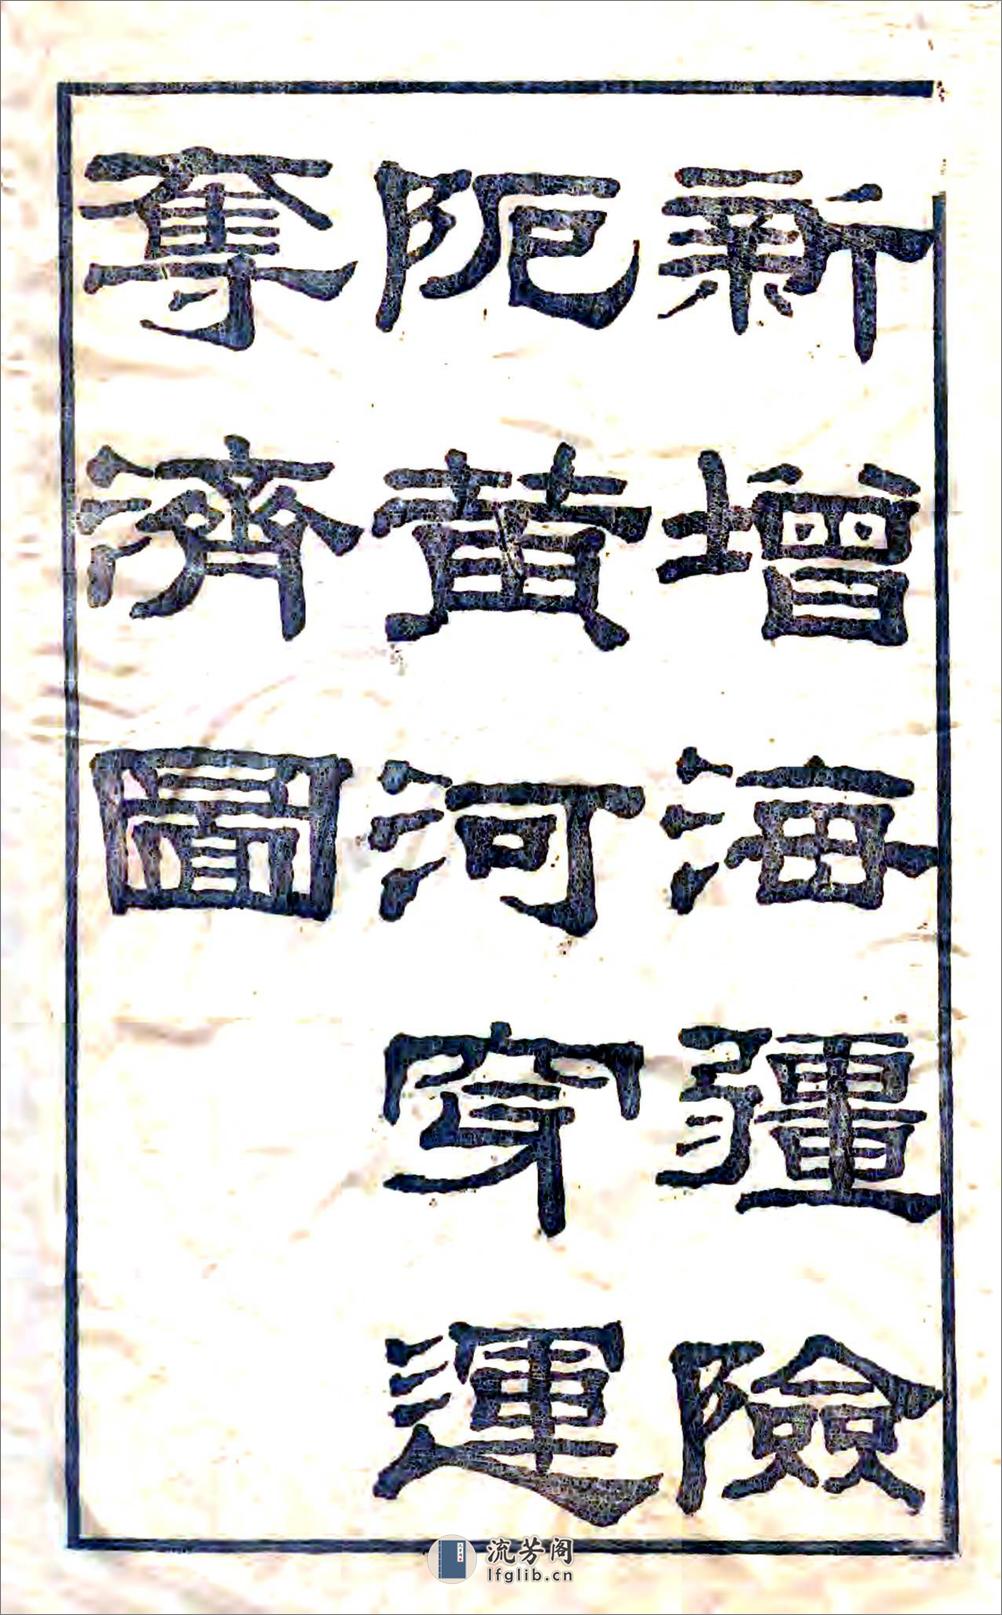 新增海疆險
阨黃河穿運
奪濟圖
流芳阁
lfglib.cn